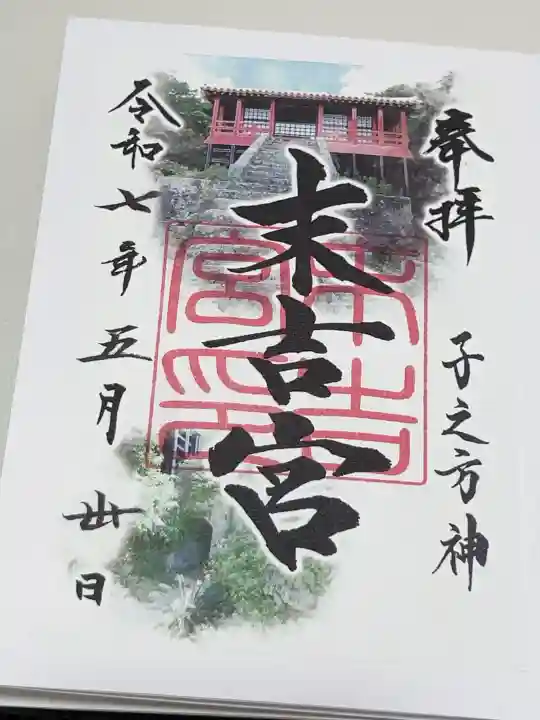 奉拝
子之方神
末吉宮
末吉宮印
令和七年五月丗日